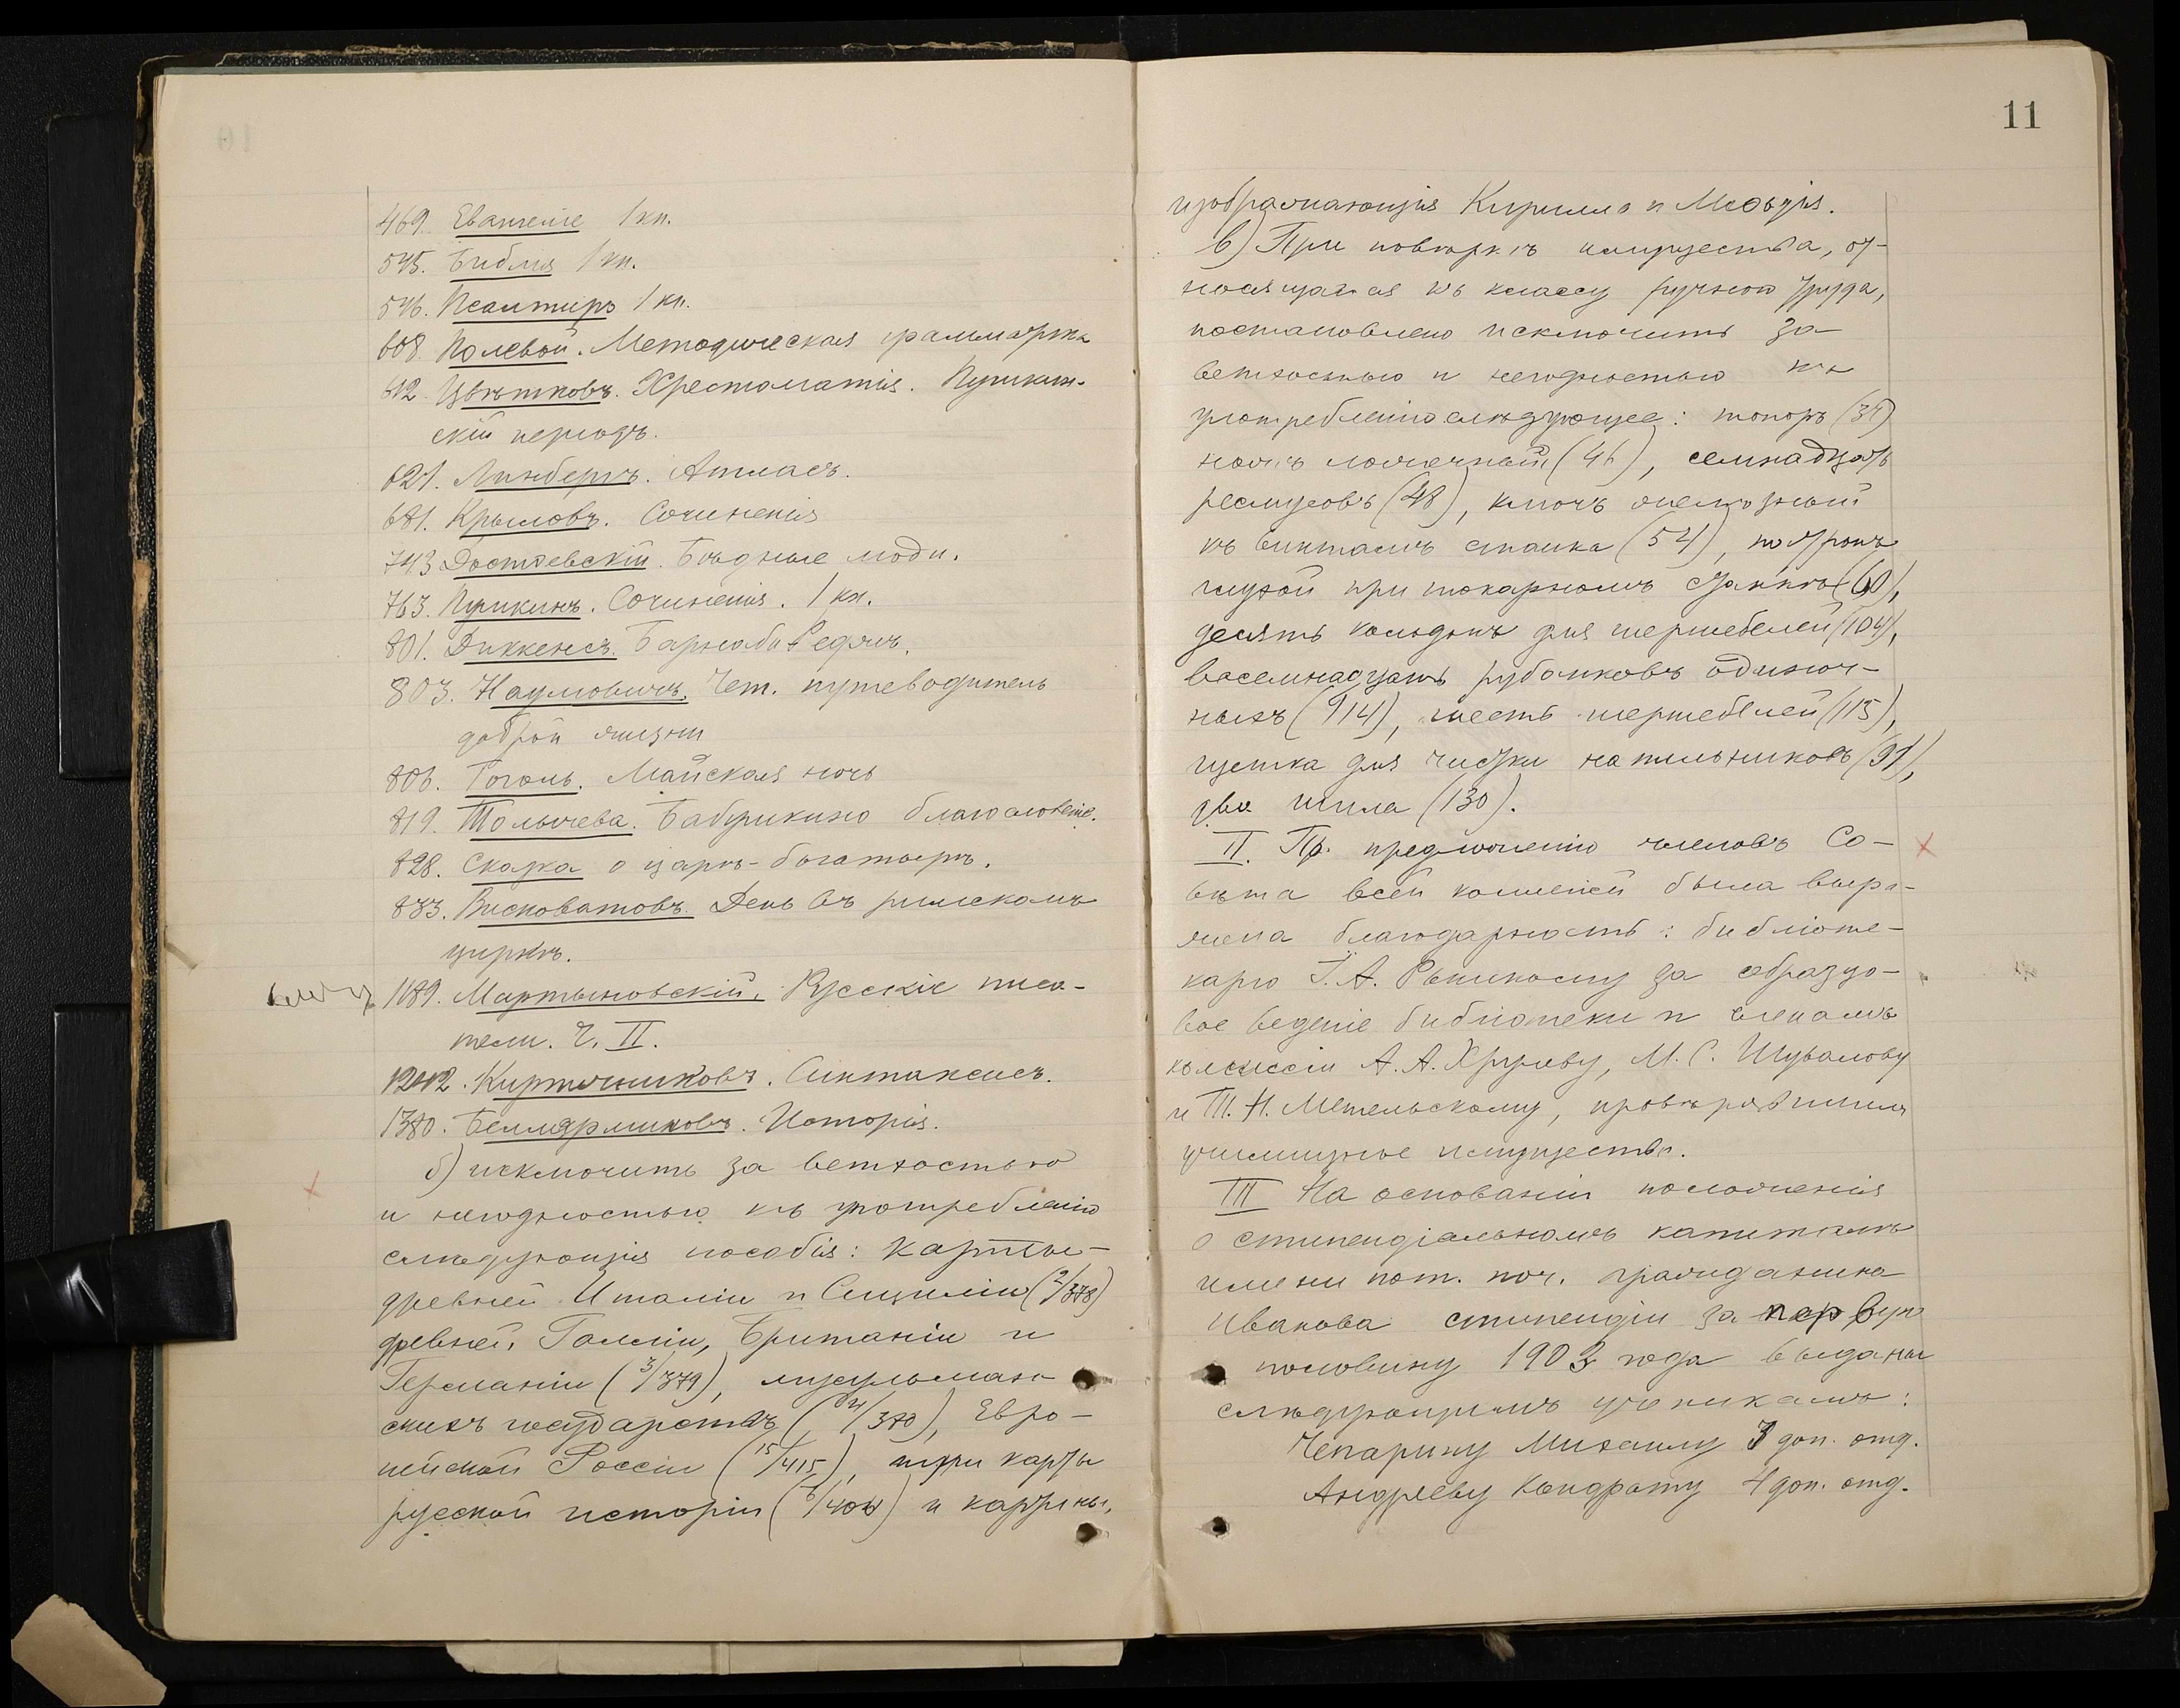 469. Евангелiе 1 кн.
545. Библiя 1 кн.
546. Псалтирь 1 кн.
608. Полевой. Методическая грамматика
612. Цвѣтковъ. Хрестоматiя. Пушкин-
скiй перiодъ.
621. Линбергъ. Атласъ.
681. Крыловъ. Сочиненiя
743 Достоевскiй. Бѣдные люди.
763. Пушкинъ. Сочиненiя. 1 кн.
801. Диккенсъ. Барнаби Реджъ.
803. Наумовичъ. Чет. путеводитель
доброй жизни
806. Гоголь. Майская ночь
819. Толычева. Бабушкино благословенiе.
828. Сказка о царѣ-богатырѣ.
833. Висковатовъ. День въ римскомъ
циркѣ.
1089. Мартыновскiй. Русскiе писа-
тели. Ч. II.
1202. Кирпичниковъ. Синтаксисъ.
1380. Беллярминовъ. Исторiя.
б) исключить за ветхостью
и негодностью къ употребленiю
слѣдующiя пособiя: карты-
древней Италiи и Сицилiи (2/378)
древней Галлiи, Британiи и
Германiи (3/379), мусульман-
скихъ государствъ (4/380), Евро-
пейской Россiи (15/415), три карты
русской исторiи (6/404) и картины,
11
изображающiя Кирилла и Меѳодiя.
в) При повѣркѣ имущества, от-
носящагося къ классу ручного труда,
постановлено исключить за
ветхостью и негодностью къ
употребленiю слѣдующее: топоръ (34)
ножъ (46), семнадцать
рейсмусовъ (48), ключъ желѣзный
къ винтамъ станка (54), патронъ
глухой при токарномъ станкѣ (60),
десять колодокъ для шершебелей (104),
восемнадцать рубанковъ одиноч-
ныхъ (114), шесть шершебелей (115),
щетка для чистки напильниковъ (91),
два шила (130).
II. По предложенiю членовъ Со-
вѣта всей коллегiей была выра-
жена благодарность: библiоте-
карю I. А. за образцо-
вое веденiе библiотеки и членамъ
комиссiи А. А. Хрулеву, М. С. Шувалову
и П. Н. Метельскому, провѣрявшимъ
училищное имущество.
III На основанiи положенiя
о стипендiальномъ капиталѣ
имени пот. поч. гражданина
Иванова стипендiи за первую
половину 1903 года выданы
слѣдующимъ ученикамъ:
Чепарину Михаилу 3 доп. отд.
Андрееву Кондрату 4 доп. отд.